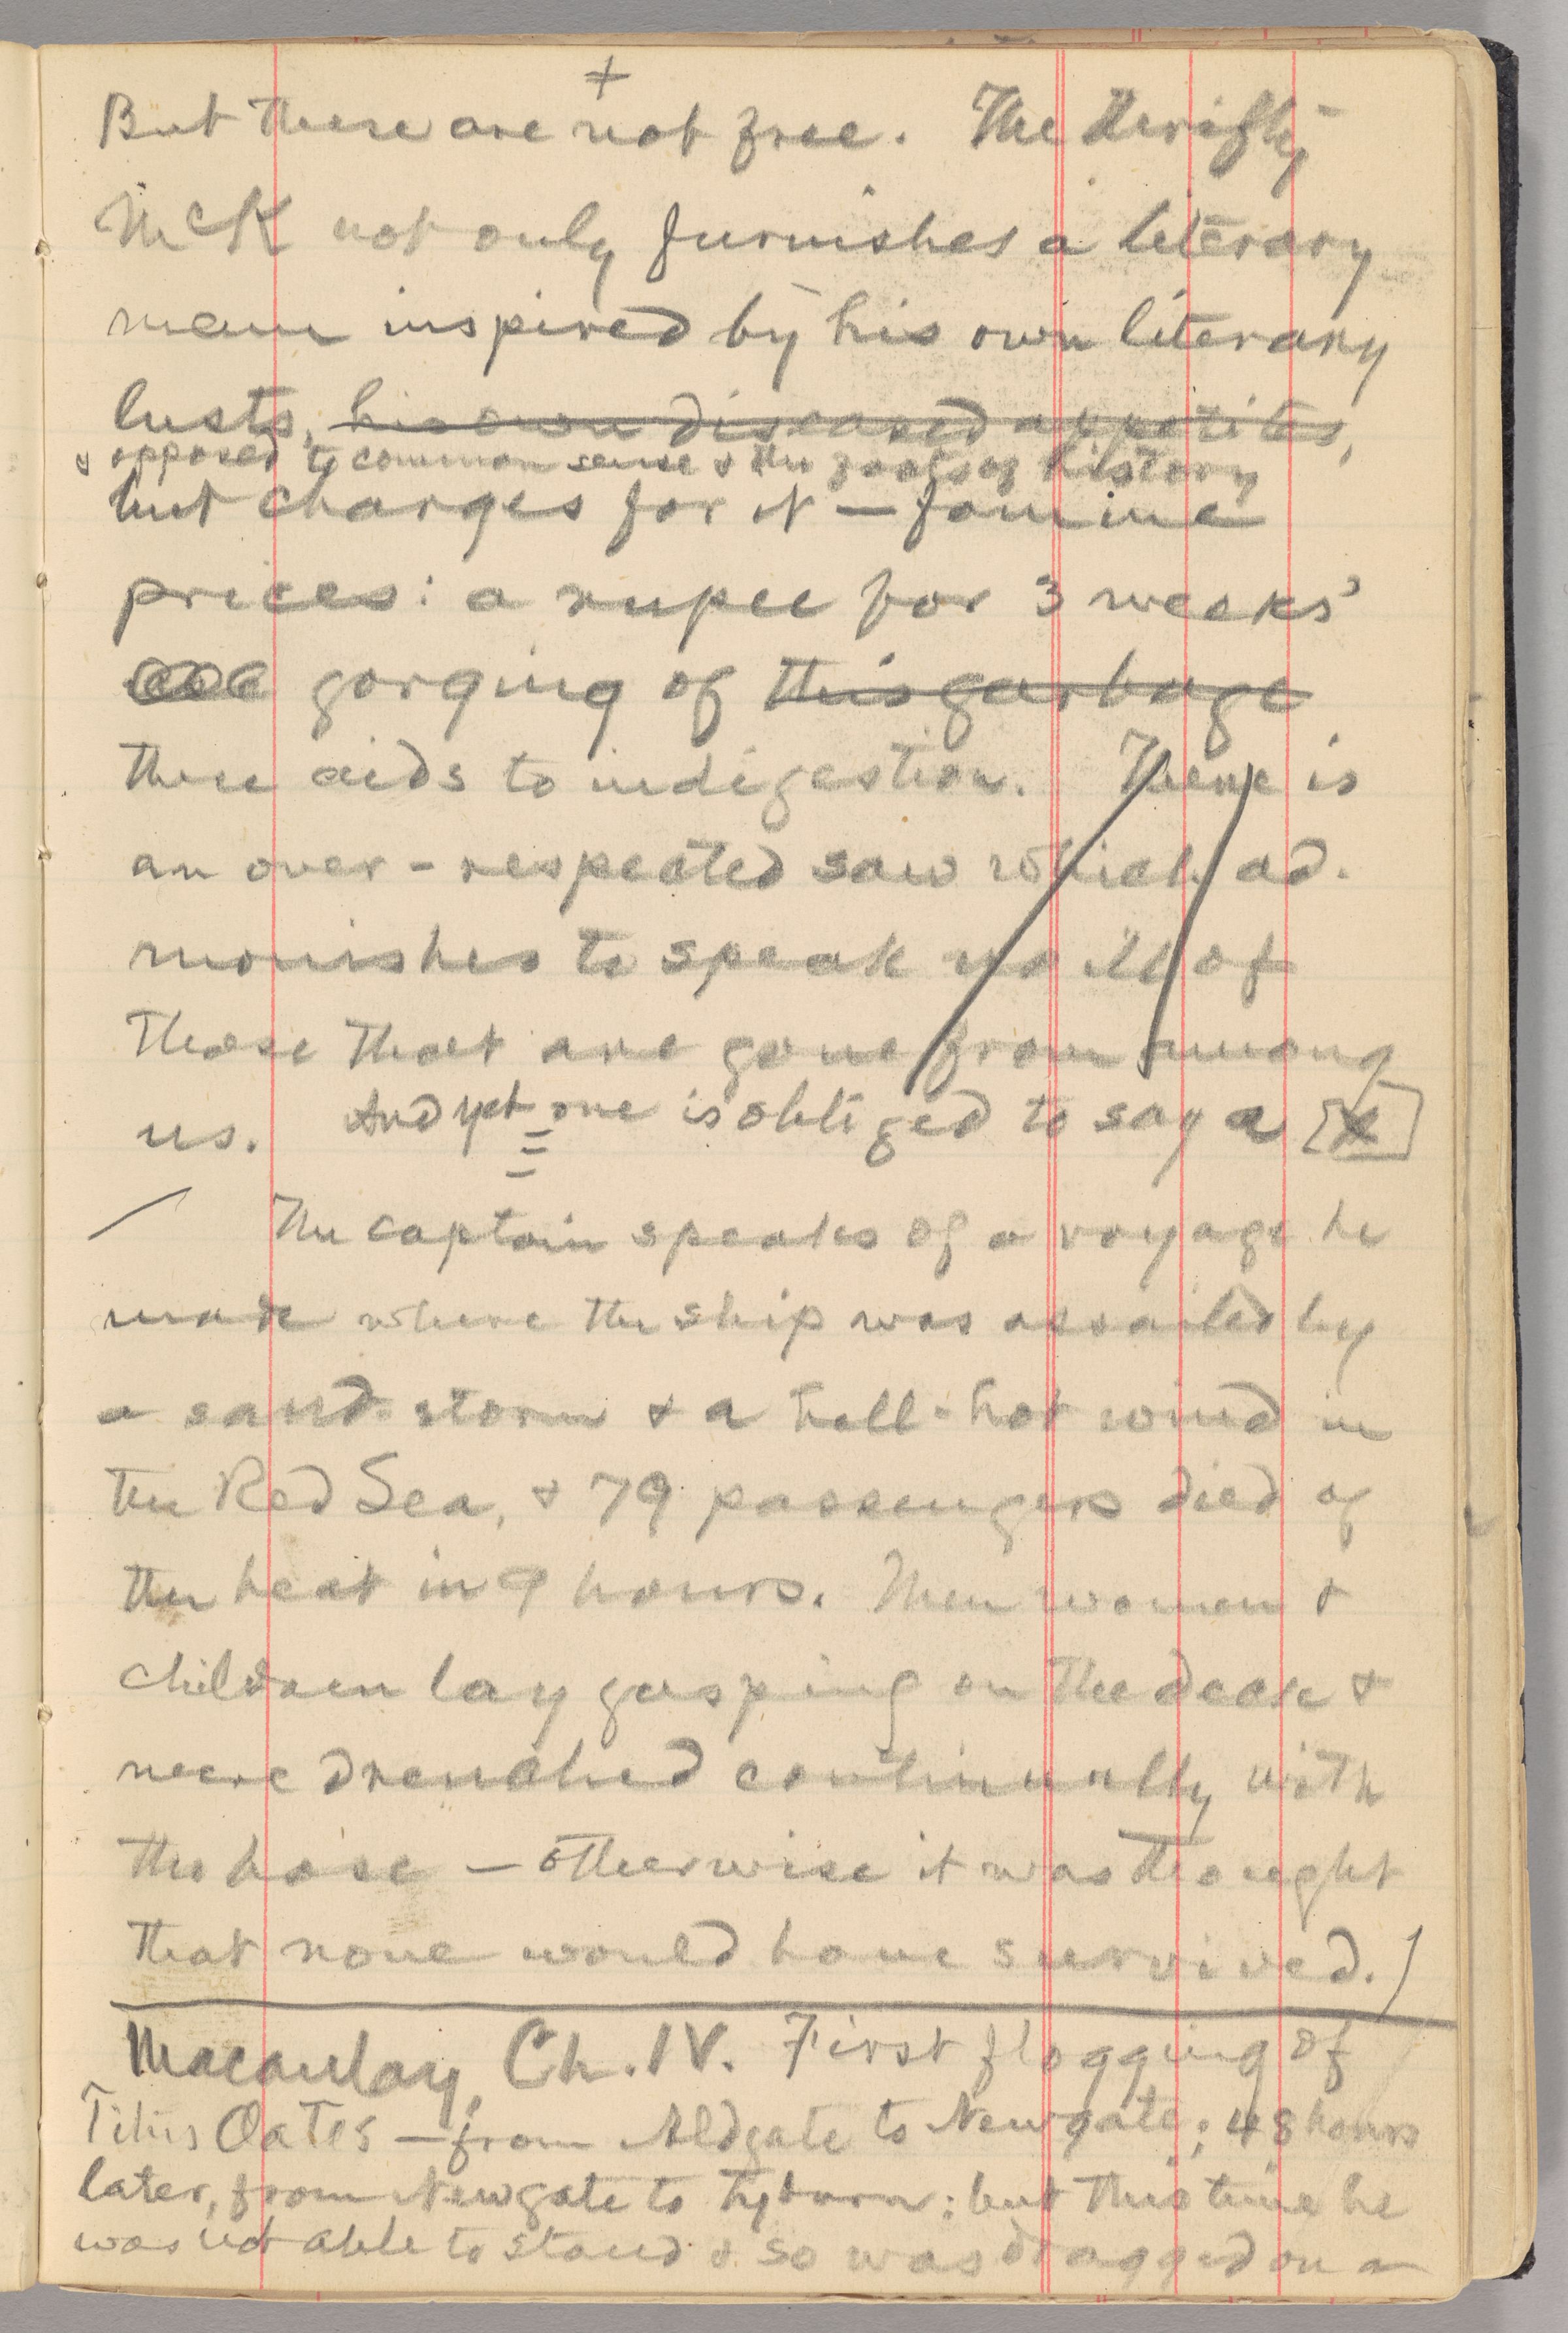 +
But these are not free. The thrifty
McK not only furnishes a literary
menu inspired by his own literary
lusts, his own diseased appetites,
& opposed to common sense & the facts of history
but charges for it — famine
prices: a rupee for 3 weeks'
gorging of this garbage
these aids to indigestion. There is
an over-respected saw which ad-
monishes to speak no ill of
those that are gone from among
us. And yet one is obliged to say a
The captain speaks of a voyage he
made where the ship was assailed by
a sand-storm & a hell-hot wind in
the Red Sea, & 79 passengers died of
the heat in 9 hours. Men women &
children lay gasping on the deck &
were drenched continually with
the hose — otherwise it was thought
that none would have survived.)
Macaulay, Ch. IV. First flogging of
Titus Oates — from Aldgate to Newgate; 48 hours
later, from Newgate to Tyburn; but this time he
was not able to stand & so was dragged on a